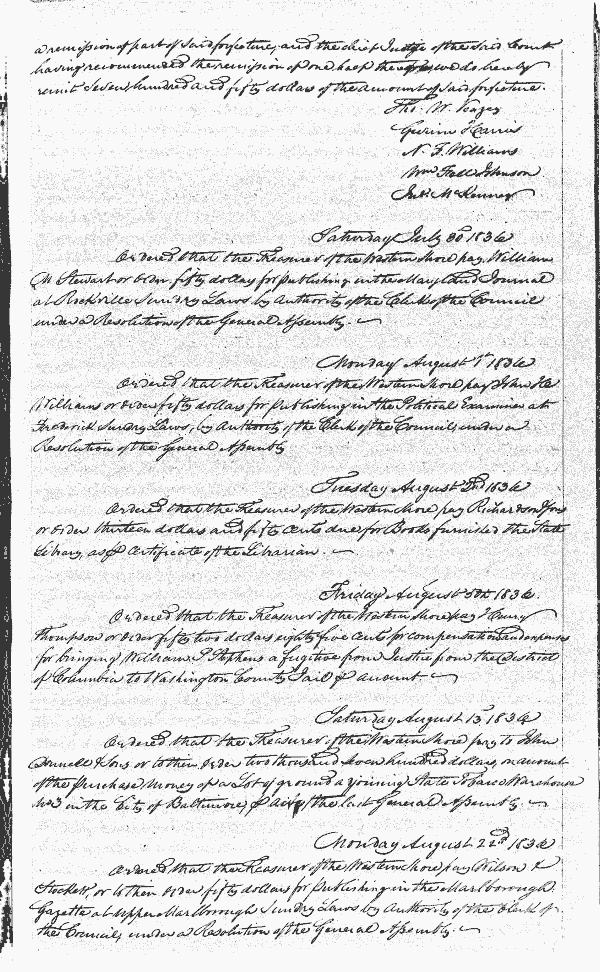 a remission of part of said forfeiture, and the chief Justice of the said Court
having recommended the remission of one half thereof, we do hereby
remit Seven hundred and fifty dollars of the amount of said forfeiture.
Tho. W. Veazey
Gwinn Harris
N. F. Williams
Wm Fell Johnson
Jno. McKenney
Saturday July 30 1836
Ordered that the Treasurer of the Western Shore pay William
M Stewart or order, fifty dollars for publishing in the Maryland Journal
at Rockville Sundry Laws by Authority of the Clerk of the Council
under a Resolution of the General Assembly.
Monday August 1st 1836
Ordered that the Treasurer of the Western Shore pay John
Williams or order fifty dollars for publishing in the Political Examiner at
Frederick Sundry Laws, by Authority of the Clerk of the Council, under a
Resolution of the General Assembly
Tuesday August 2nd 1836
Ordered that the Treasurer of the Western Shore pay Richardson
or order thirteen dollars and fifty cents due for Books furnished the State
Library, as pr Certificate of the Librarian.
Friday August 5th 1836.
Ordered that the Treasurer of the Western Shore pay Henry
Thompson or order fifty two dollars eighty five Cents for compensation and expenses
for bringing William Stephens a fugitive from Justice from the District
of Columbia to Washington County Jail pr account
Saturday August 13 1836
Ordered that the Treasurer of the Western Shore pay to John
& Sons or to their order two thousand seven hundred dollars, on account
of the purchase money of a Lot of ground adjoining State Tobacco Warehouse
No 3 in the City of Baltimore, pr Act of the last General Assembly.
Monday August 22nd 1836
Ordered that the Treasurer of the Western Shore pay Wilson &
Stockett or to their order fifty dollars for publishing in the Marlborough
Gazette at Upper Marlborough Sundry Laws by Authority of the Clerk of
the Council, under a Resolution of the General Assembly.